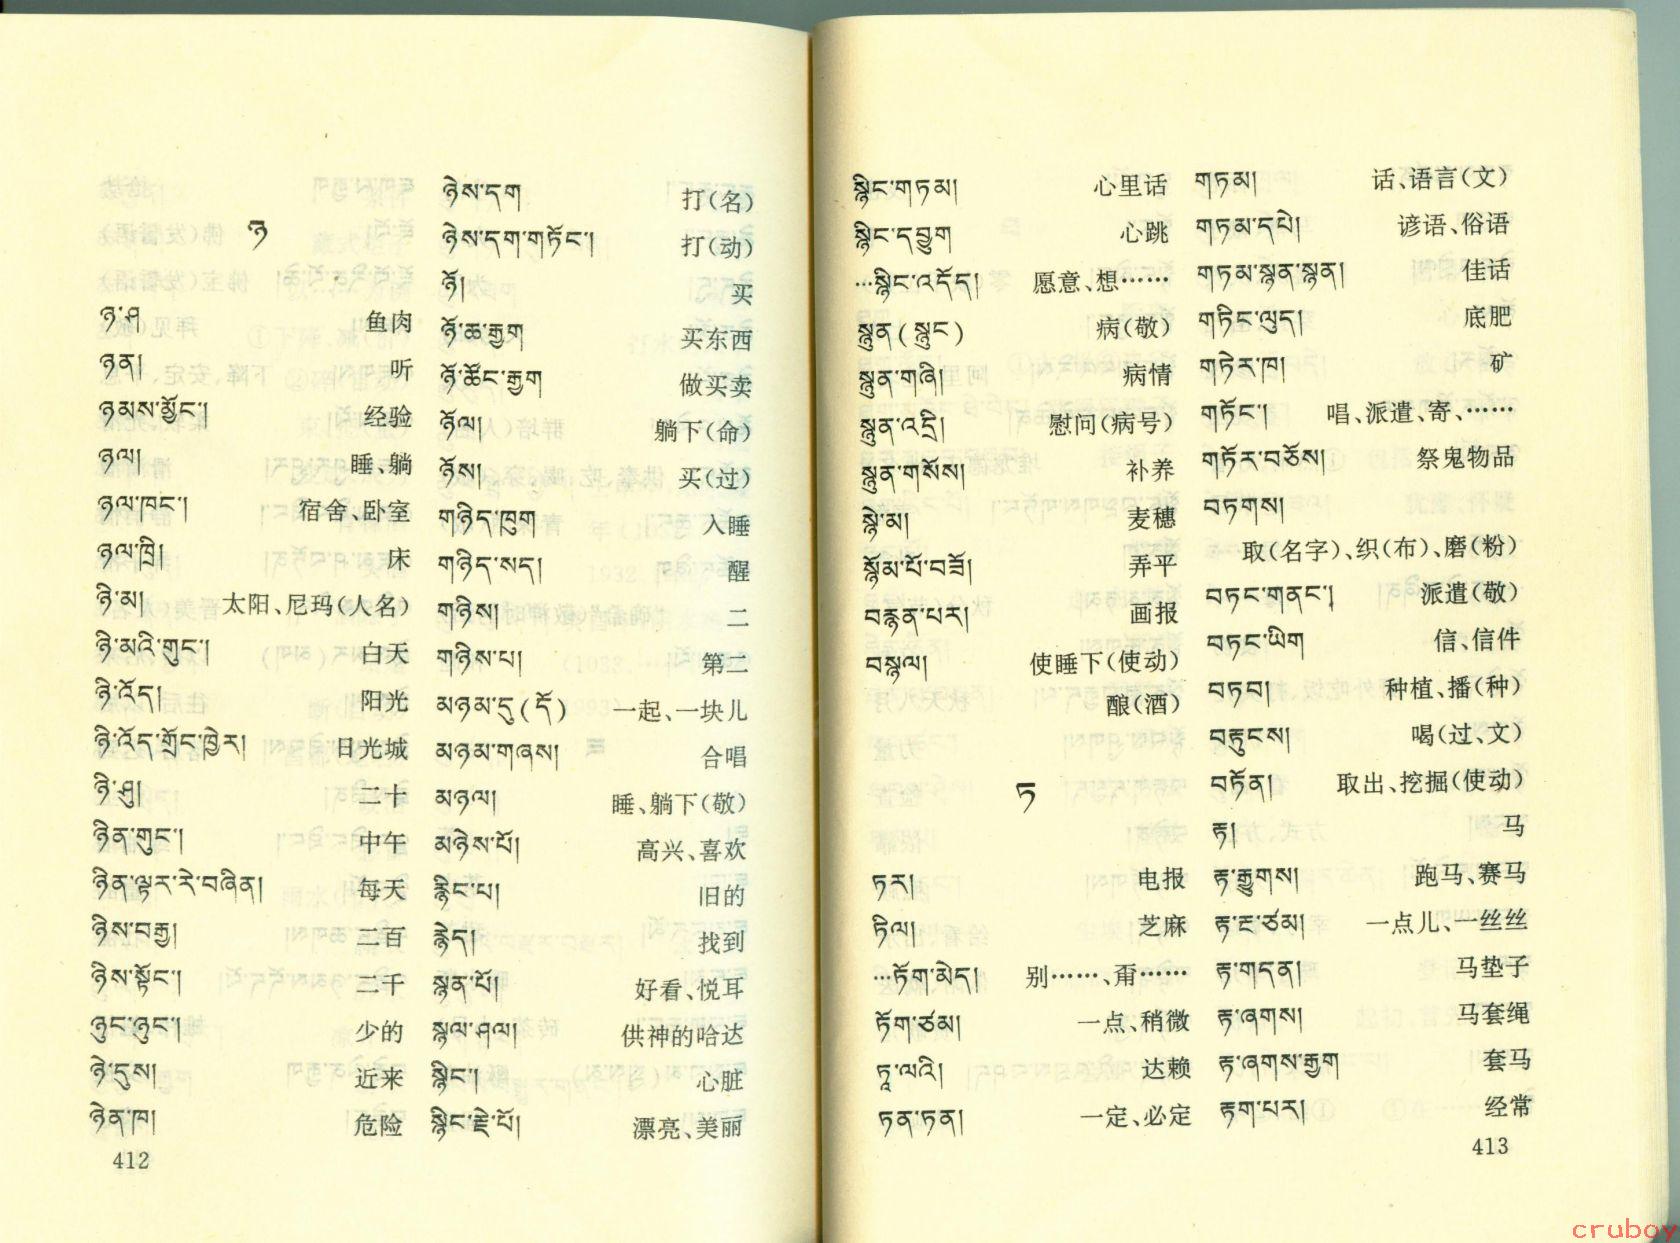 ཉ
ཉ་ཤ 鱼肉
ཉན། 听
ཉམས་མྱོང་། 经验
ཉལ། 睡、躺
ཉལ་ཁང་། 宿舍、卧室
ཉལ་ཁྲི། 床
ཉི་མ། 太阳、尼玛(人名)
ཉི་མའི་གུང་། 白天
ཉི་འོད། 阳光
ཉི་འོད་གྲོང་ཁྱེར། 日光城
ཉི་ཤུ། 二十
ཉིན་གུང་། 中午
ཉིན་ལྟར་རེ་བཞིན། 每天
ཉིས་བརྒྱ། 二百
ཉིས་སྟོང་། 二千
ཉུང་ཉུང་། 少的
ཉེ་དུས། 近来
ཉེན་ཁ། 危险
412
ཉེས་དག 打(名)
ཉེས་དག་གཏོང་། 打(动)
ཉོ། 买
ཉོ་ཆ་རྒྱག 买东西
ཉོ་ཚོང་རྒྱག 做买卖
ཉོལ། 躺下(命)
ཉོས། 买(过)
གཉིད་ཁུག 入睡
གཉིད་སད། 醒
གཉིས། 二
གཉིས་པ། 第二
མཉམ་དུ(དོ) 一起、一块儿
མཉམ་གཞས། 合唱
མཉལ། 睡、躺下(敬)
མཉེས་པོ། 高兴、喜欢
རྙིང་པ། 旧的
རྙེད། 找到
སྙན་པོ། 好看、悦耳
སྙལ་ཤལ། 供神的哈达
སྙིང་། 心脏
སྙིང་རྗེ་པོ། 漂亮、美丽
སྙིང་གཏམ། 心里话
སྙིང་དབྱུག 心跳
…སྙིང་འདོད། 愿意、想……
སྙུན(སྙུང) 病(敬)
སྙུན་གཞི། 病情
སྙུན་འདྲི། 慰问(病号)
སྙུན་གསོས། 补养
སྙེ་མ། 麦穗
སྙོམ་པོ་བཟོ། 弄平
བརྙན་པར། 画报
བསྙལ། 使睡下(使动)
酿(酒)
ཏ
ཏར། 电报
ཏིལ། 芝麻
…ཏོག་མེད། 别……、甭……
ཏོག་ཙམ། 一点、稍微
ཏཱ་ལའི། 达赖
ཏན་ཏན། 一定、必定
གཏམ། 话、语言(文)
གཏམ་དཔེ། 谚语、俗语
གཏམ་སྙན་སྙན། 佳话
གཏིང་ལུད། 底肥
གཏེར་ཁ། 矿
གཏོང་། 唱、派遣、寄、……
གཏོར་བཅོས། 祭鬼物品
བཏགས།
取(名字)、织(布)、磨(粉)
བཏང་གནང་། 派遣(敬)
བཏང་ཡིག 信、信件
བཏབ། 种植、播(种)
བཏུངས། 喝(过、文)
བཏོན། 取出、挖掘(使动)
རྟ། 马
རྟ་རྒྱུགས། 跑马、赛马
རྟ་ང་ཙམ། 一点儿、一丝丝
རྟ་གདན། 马垫子
རྟ་ཞགས། 马套绳
རྟ་ཞགས་རྒྱག 套马
རྟག་པར། 经常
413
cruboy